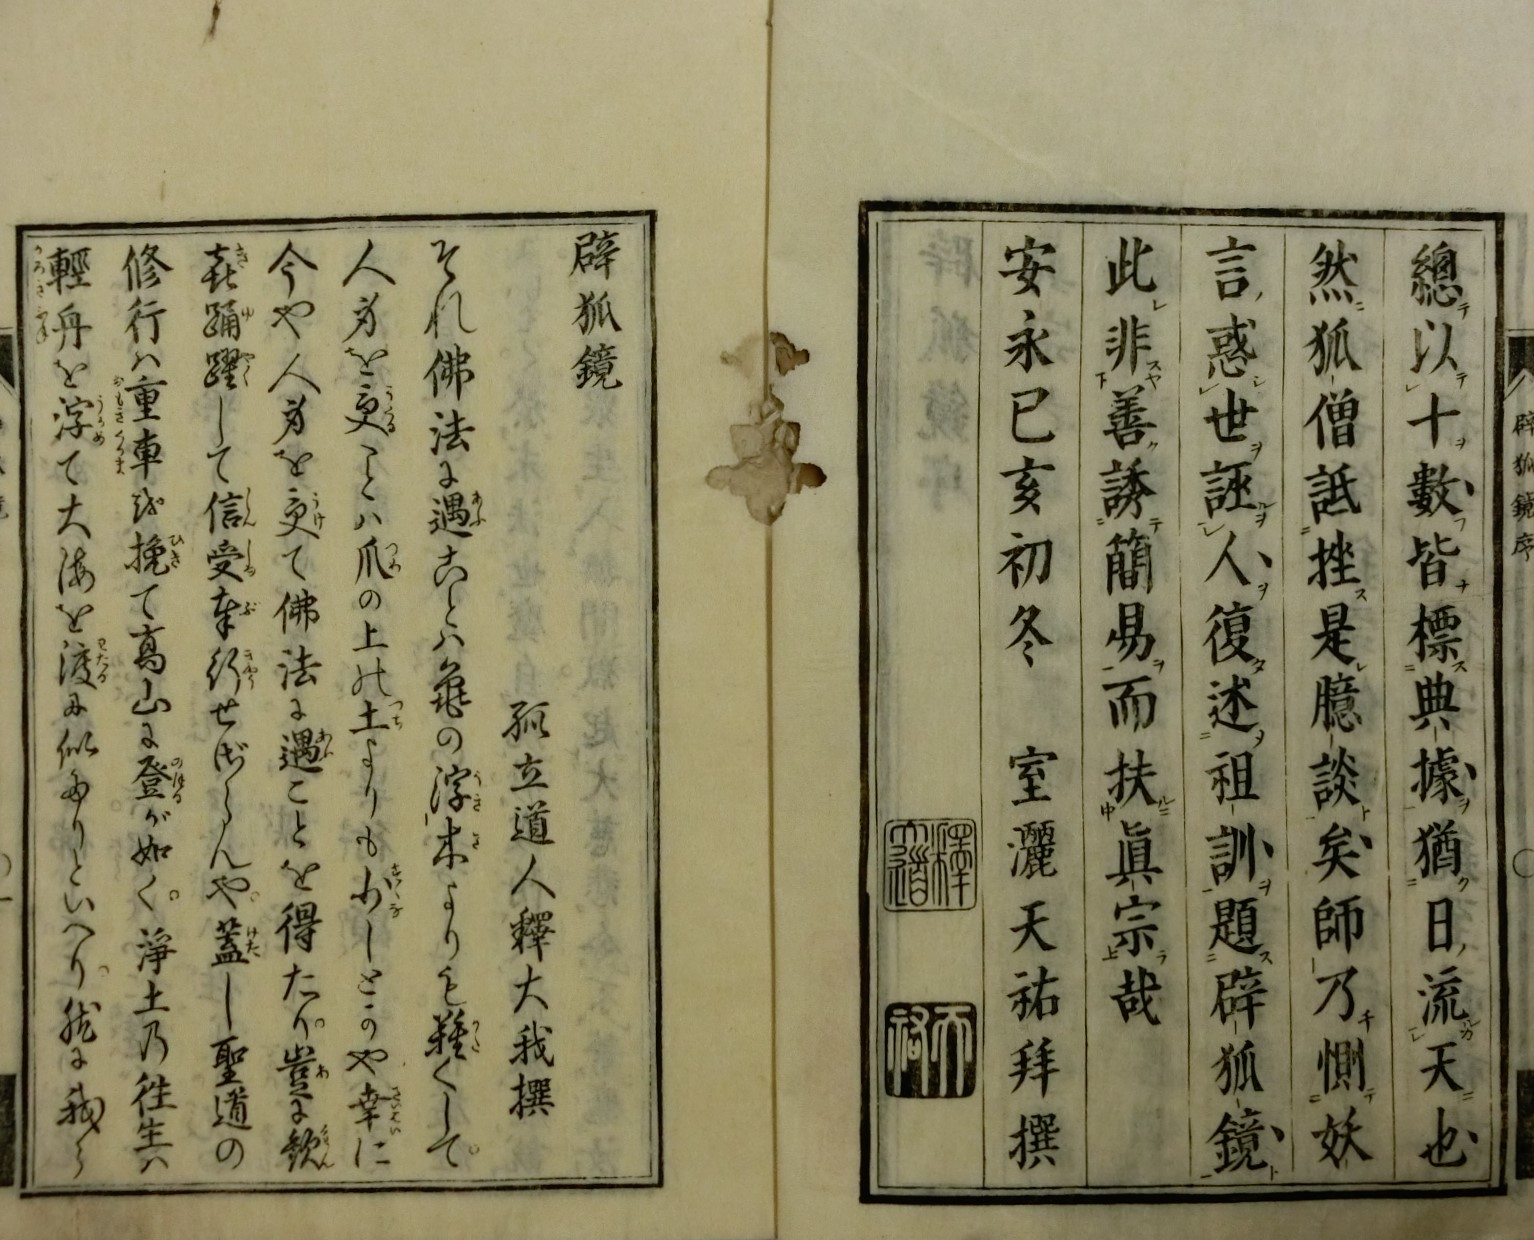 總以十數皆標典據猶日流天也
然狐僧詆挫是臆談矣師乃惻妖
言惑世誣人復述祖訓題辟狐鏡
此非善誘簡易而扶眞宗哉
安永己亥初冬　室灑天祐拜撰
辟狐鏡序
辟狐鏡
孤立道人釋大我撰
それ佛法に遇ことハ龜の浮木よりも難くして。
人身を更ことハ爪の上の土よりも少しとかや幸に
今や人身を更て佛法に遇ことを得たり。豈に歓
喜踊躍して信受奉行せざらんや。蓋し聖道の
修行ハ重車を挽て高山に登が如く。淨土乃往生ハ
輕舟を浮て大海を渡に似たりといへり。然に我